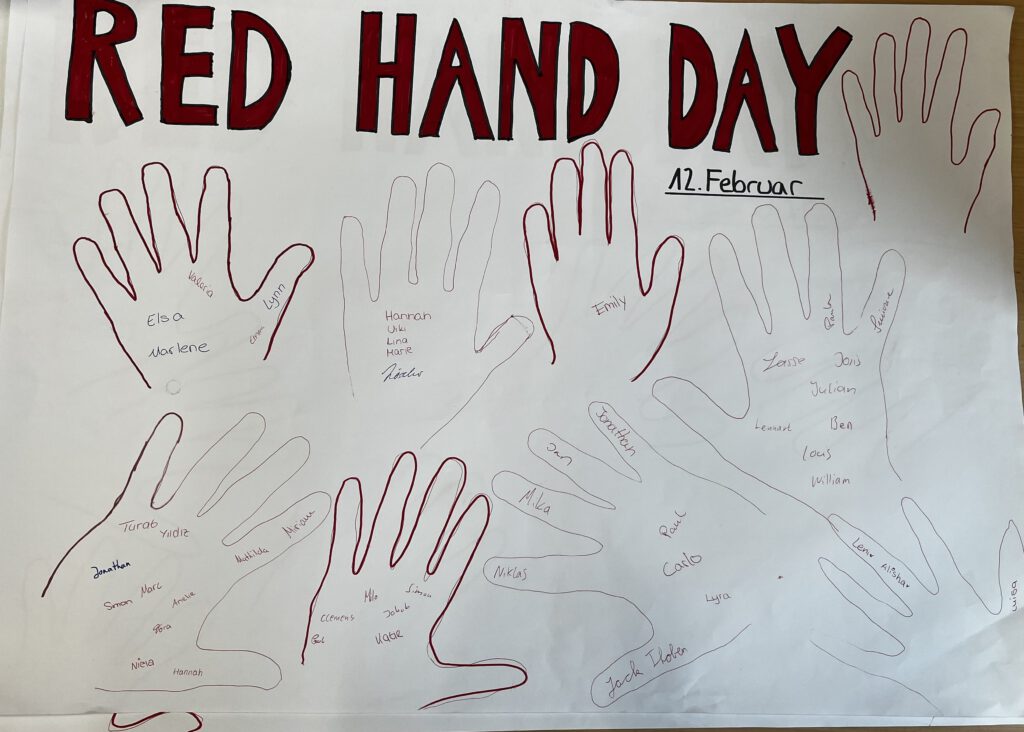 RED HAND DAY
12. Februar
Valeria
Elsa
Lynn
Marlene
Hannah
Viki
Lina
Marie
Emily
Paula
Lasse
Joris
Julian
Lennart
Ben
Louis
William
Turab
Yildiz
Mathilda
Miriam
Jonathan
Simon
Marc
Amelie
Niela
Hannah
Milo
Simon
Clemens
Jakob
Paul
Jonathan
Jan
Mika
Niklas
Paul
Carlo
Lyra
Jack Thoben
Lena
Alisha
Luisa